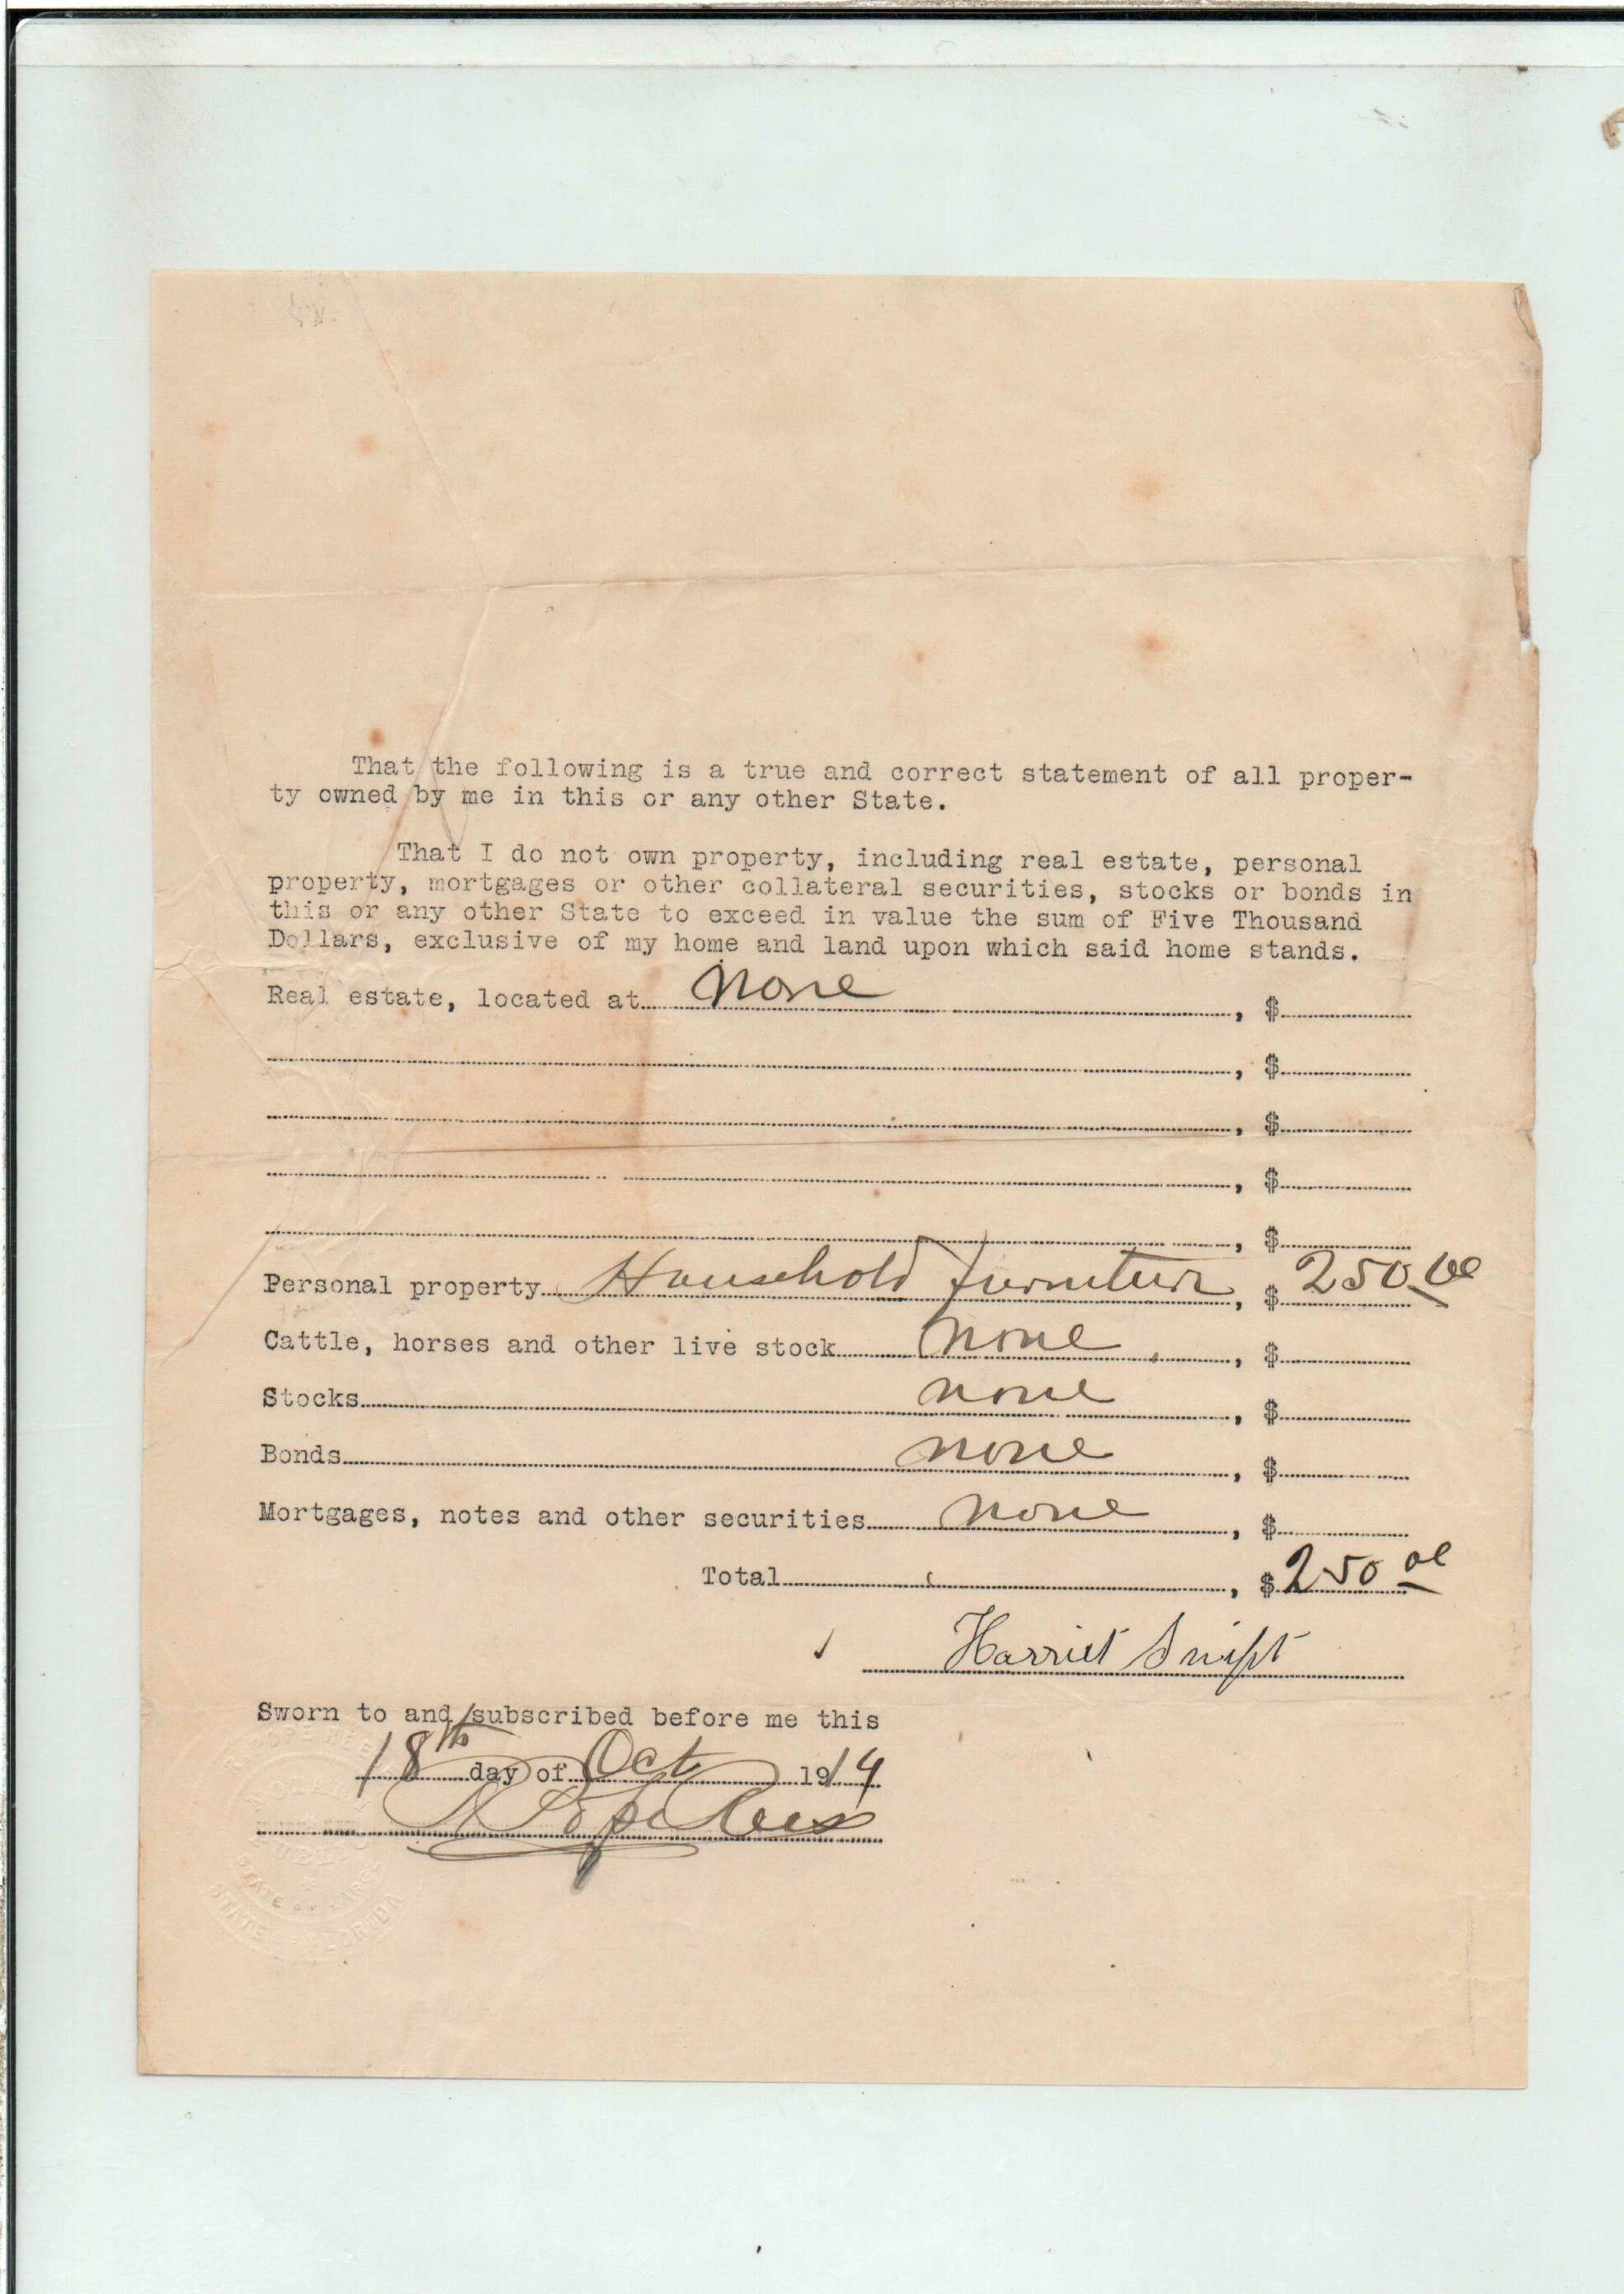 That the following is a true and correct statement of all proper-
ty owned by me in this or any other State.
That I do not own property, including real estate, personal
property, mortgages or other collateral securities, stocks or bonds in
this or any other State to exceed in value the sum of Five Thousand
Dollars, exclusive of my home and land upon which said home stands.
Real estate, located at None , $
, $
, $
, $
, $
Personal property Household furniture, $ 250.00
Cattle, horses and other live stock none , $
Stocks none , $
Bonds none , $
Mortgages, notes and other securities none , $
Total , $ 250 00
Harriet Swift
Sworn to and subscribed before me this
18th day of Oct 1914
R Pope Rees
NOTARY
PUBLIC
STATE AT LARGE
STATE OF FLORIDA